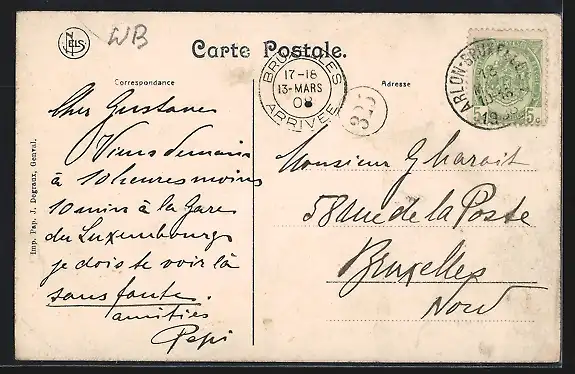 NELS
WB
Carte Postale.
Correspondance
Adresse
BRUXELLES
17-18
13-MARS
08
ARRIVÉE
325
ARLON-BRUXELLES
5c
Cher Gustave
Viens demain
à 10 heures moins
10 min à la Gare
du Luxembourg
je dois te voir là
sans faute.
amitiés
Pepi
Monsieur G
58 rue de la Poste
Bruxelles
Nord
Imp. Pap. J. Degraux, Genval.